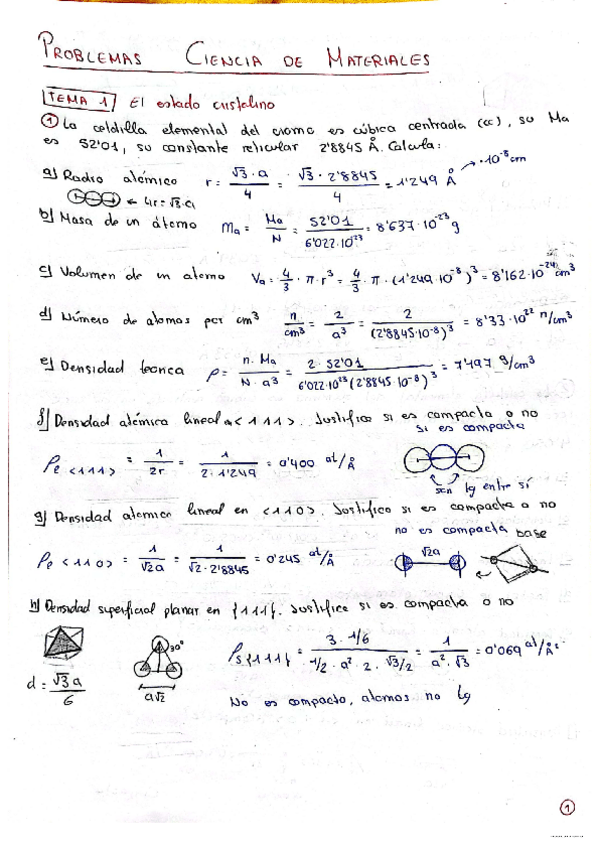 PROBLEMAS CIENCIA DE MATERIALES
TEMA 1 El estado cristalino
① La celdilla elemental del cromo es cúbica centrada (cc), su Ma
es 52'01, su constante reticular 2'8845 Å. Calcula:
a) Radio atómico r = √3·a / 4 = √3·2'8845 / 4 = 1'249 Å → ·10⁻⁸ cm
← 4r = √3·a
b) Masa de un átomo ma = Ma / N = 52'01 / 6'022·10²³ = 8'637·10⁻²³ g
c) Volumen de un atomo Va = 4/3 · π · r³ = 4/3 · π · (1'249·10⁻⁸)³ = 8'162·10⁻²⁴ cm³
d) Número de atomos por cm³ n/cm³ = 2 / a³ = 2 / (2'8845·10⁻⁸)³ = 8'33·10²² n/cm³
e) Densidad teorica ρ = n·Ma / N·a³ = 2·52'01 / 6'022·10²³ (2'8845·10⁻⁸)³ = 7'497 g/cm³
f) Densidad atómica lineal <111>. Justifica si es compacta o no
si es compacta
ρe <111> = 1 / 2r = 1 / 2·1'249 = 0'400 at/Å
son tg entre sí
g) Densidad atomica lineal en <110>. Justifica si es compacta o no
no es compacta base
ρe <110> = 1 / √2a = 1 / √2·2'8845 = 0'245 at/Å
√2a
h) Densidad superficial planar en {111}. Justifica si es compacta o no
ρs{111} = 3·1/6 / 1/2·a²·2·√3/2 = 1 / a²·√3 = 0'069 at/Å²
d = √3a / 6
a√2
No es compacto, atomos no tg
①